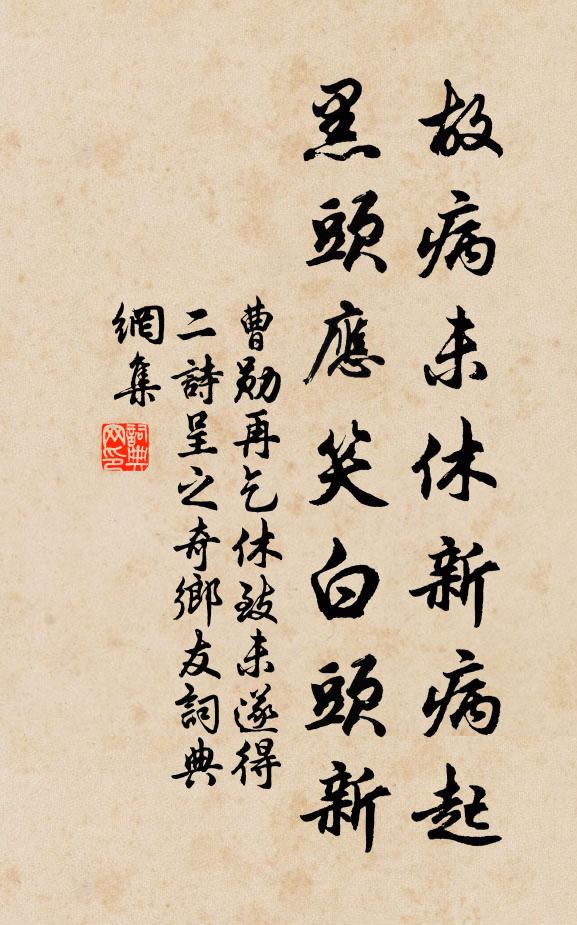 故病未休新病起
黑頭應笑白頭新
曹勛再乞休致未遂得
二詩呈之奇鄉友詞典
網集
詞典網印